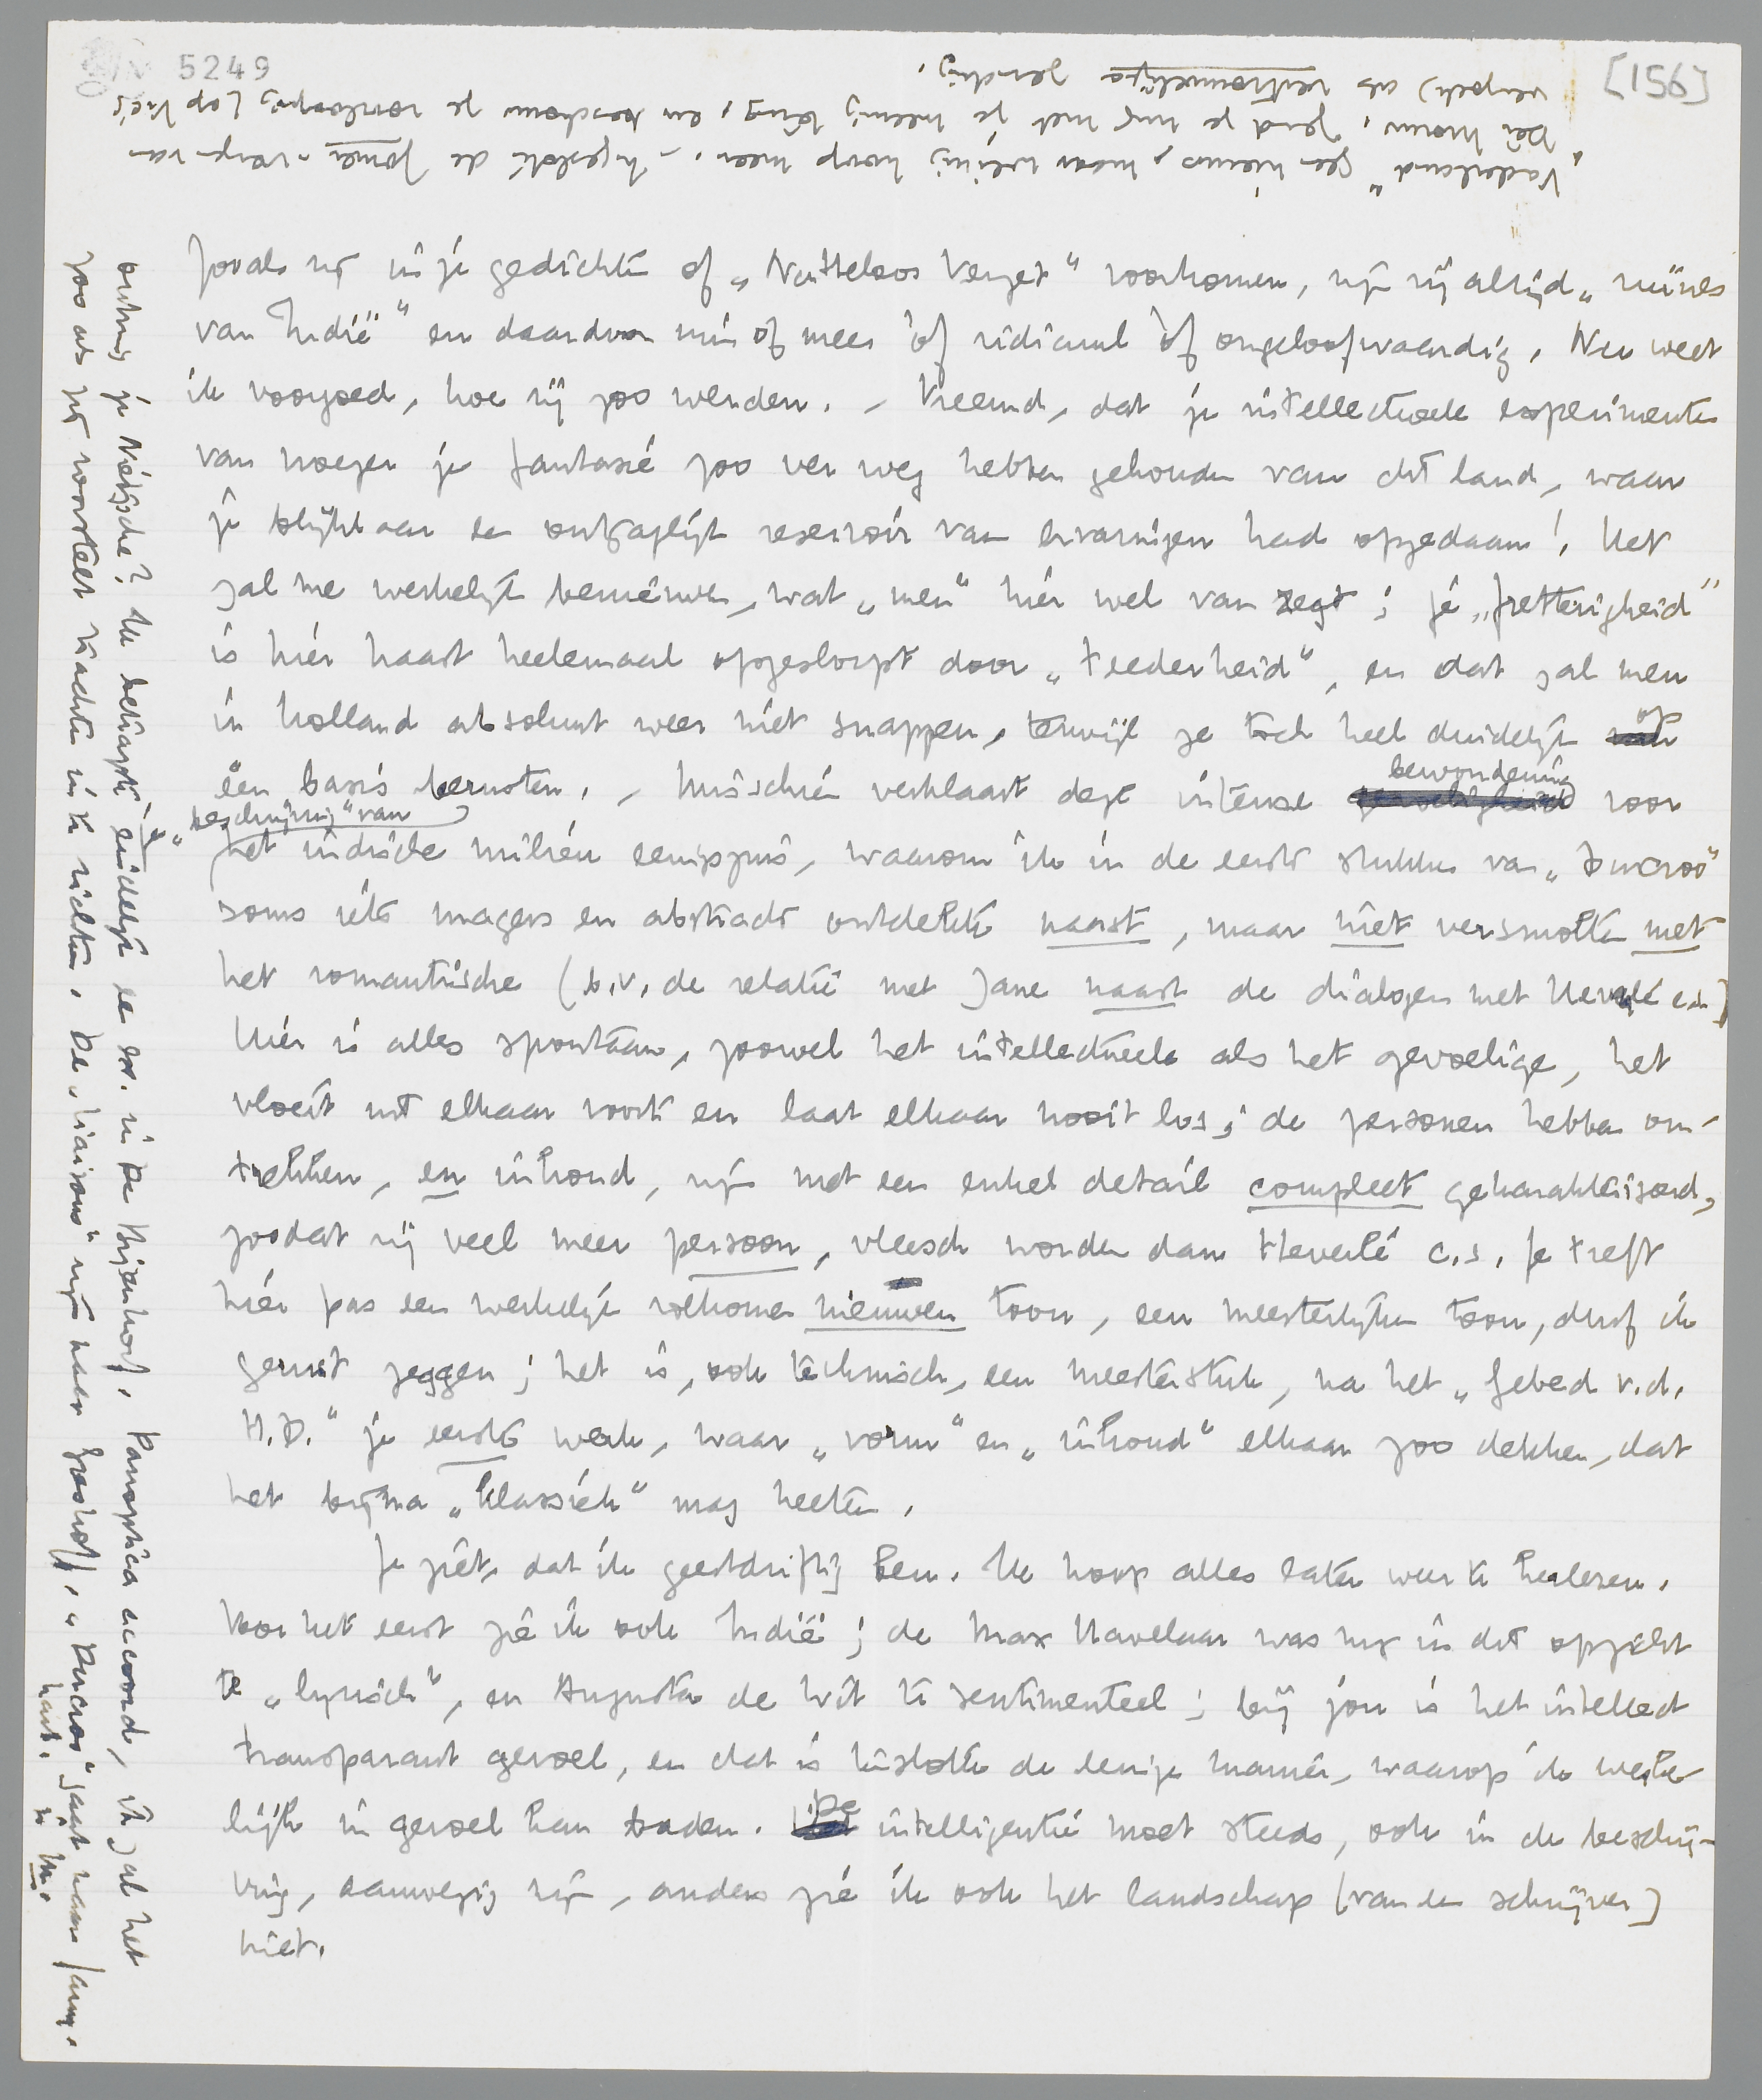 5249
[156]
"Vaderland" geen nieuws, maar weinig hoop meer. - Ingesloten de Jomer-verzen van
Dèr Mouw. Zend je mij met je meening terug, en beschouw je voorloopig (op Vic's
verzoek) als vertrouwelijke zending.
zooals zij in je gedichten of „Nutteloos Verzet" voorkomen, zijn zij altijd „ruïnes
van Indië" en daardoor min of meer òf ridicuul òf ongeloofwaardig. Nu weet
ik voorgoed, hoe zij zoo werden. - Vreemd, dat je intellectueele experimenten
van vroeger je fantasie zoo ver weg hebben gehouden van dit land, waar
je blijkbaar een ontzaglijk reservoir van ervaringen had opgedaan! Het
zal me werkelijk benieuwen, wat „men" hier wel van zegt; je „pretterigheid"
is hier haast heelemaal opgeslorpt door „teederheid", en dat zal men
in Holland absoluut weer niet snappen, terwijl ze toch heel duidelijk op
één basis berusten. - Misschien verklaart deze intense bewondering voor
„beschrijving" van
het indische milieu eenigszins, waarom ik in de eerste stukken van „Ducroo"
soms iets magers en abstracts ontdekte naast, maar niet versmolten met
het romantische (b.v. de relatie met Jane naast de dialogen met Heverlé etc)
Hier is alles spontaan, zoowel het intellectueele als het gevoelige, het
vloeit uit elkaar voort en laat elkaar nooit los; de personen hebben om-
trekken, en inhoud, zijn met een enkel detail compleet gekarakteriseerd,
zoodat zij veel meer persoon, vleesch worden dan Heverlé c.s. Je treft
hier pas een werkelijk volkomen nieuwen toon, een meesterlijken toon, durf ik
gerust zeggen; het is, ook technisch, een meesterstuk, na het „Gebed v.d.
H.D." je eerste werk, waar „vorm" en „inhoud" elkaar zoo dekken, dat
het bijna „klassiek" mag heeten.
Je ziet, dat ik geestdriftig ben. Ik hoop alles later weer te herlezen.
Voor het eerst zie ik ook Indië; de Max Havelaar was mij in dit opzicht
te „lyrisch", en Augusta de Wit te sentimenteel; bij jou is het intellect
transparant gevoel, en dat is tenslotte de eenige manier, waarop ik werke-
lijk in gevoel kan baden. De intelligentie moet steeds, ook in de beschrij-
ving, aanwezig zijn, anders zie ik ook het landschap (van den schrijver)
niet.
ontving je Nietzsche? Ik betrapte eindelijk een ex. in De Bijenkorf. Panoptica accoord, ik zal het
zoo als jij voorstelt trachten in te richten. De „liaisons" zijn naar Greshoff. „Ducroo" gaat naar
hart.